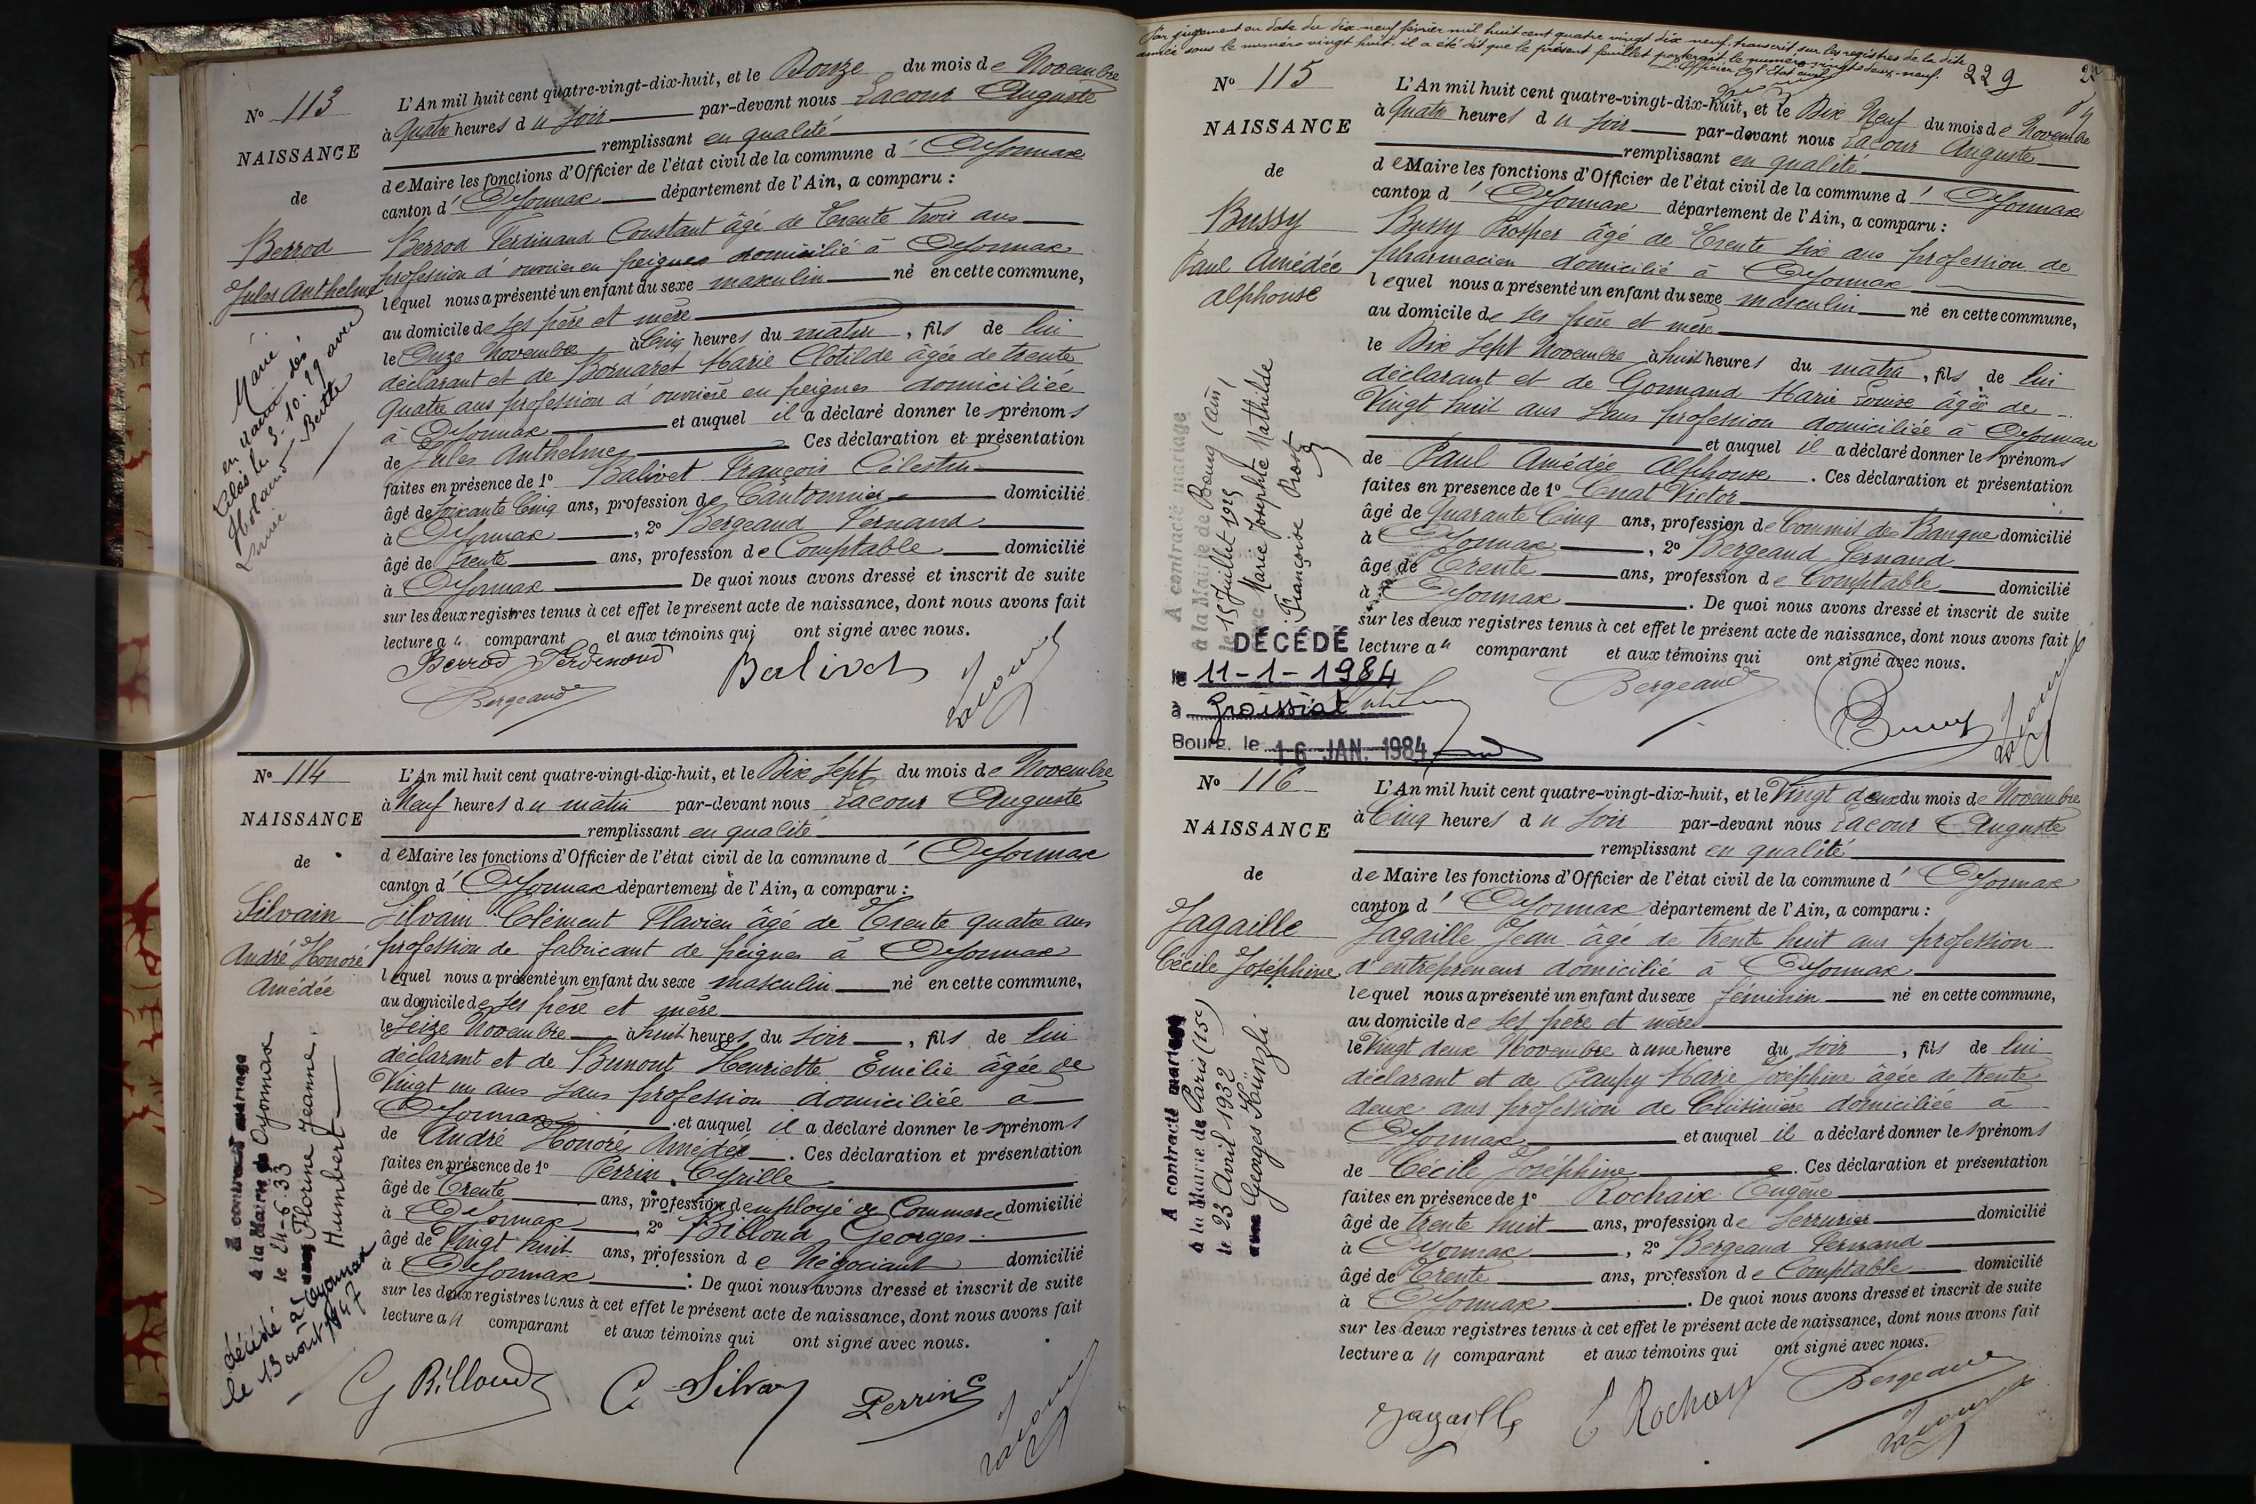 N° 113
NAISSANCE
de
Berrod
Jules Anthelme
Marié
L'An mil huit cent quatre-vingt-dix-huit, et le Douze du mois de Novembre
à Quatre heures du soir par-devant nous Lacour Auguste
remplissant en qualité
de Maire les fonctions d'Officier de l'état civil de la commune d' Oyonnax
canton d' Oyonnax département de l'Ain, a comparu :
Berrod Ferdinand Constant âgé de Trente trois ans
profession d'ouvrier en peignes domicilié à Oyonnax
lequel nous a présenté un enfant du sexe masculin né en cette commune,
au domicile de ses père et mère
le Onze Novembre à Cinq heures du matin, fils de lui
déclarant et de Bornaret Marie Clotilde âgée de trente
Quatre ans profession d'ouvrière en peignes domiciliée
à Oyonnax et auquel il a déclaré donner les prénoms
de Jules Anthelme Ces déclaration et présentation
faites en présence de 1° Balivet François Célestin
âgé de soixante Cinq ans, profession de Cantonnier domicilié
à Oyonnax, 2° Bergeaud Fernand
âgé de Trente ans, profession de Comptable domicilié
à Oyonnax De quoi nous avons dressé et inscrit de suite
sur les deux registres tenus à cet effet le présent acte de naissance, dont nous avons fait
lecture au comparant et aux témoins qui ont signé avec nous.
Berrod Ferdinand Balivet Lacour
Bergeaud
N° 114
NAISSANCE
de
Silvain
André Honoré
Amédée
A contracté mariage
à la Mairie de Oyonnax
le 24-6-33
avec Florine Jeanne
Humbert
décédé à Oyonnax
le 13 août 1947
L'An mil huit cent quatre-vingt-dix-huit, et le Dix Sept du mois de Novembre
à Neuf heures du matin par-devant nous Lacour Auguste
remplissant en qualité
de Maire les fonctions d'Officier de l'état civil de la commune d' Oyonnax
canton d' Oyonnax département de l'Ain, a comparu :
Silvain Clément Flavien âgé de Trente quatre ans
profession de fabricant de peignes à Oyonnax
lequel nous a présenté un enfant du sexe masculin né en cette commune,
au domicile de ses père et mère
le Seize Novembre à huit heures du soir, fils de lui
déclarant et de Bunont Henriette Emélie âgée de
Vingt un ans sans profession domiciliée à
Oyonnax et auquel il a déclaré donner les prénoms
de André Honoré Amédée. Ces déclaration et présentation
faites en présence de 1° Perrin Cyrille
âgé de Trente ans, profession d employé de Commerce domicilié
à Oyonnax, 2° Billoud Georges
âgé de Vingt huit ans, profession de Négociant domicilié
à Oyonnax : De quoi nous avons dressé et inscrit de suite
sur les deux registres tenus à cet effet le présent acte de naissance, dont nous avons fait
lecture au comparant et aux témoins qui ont signé avec nous.
G Billoud C. Silvain Perrin C Lacour
Par jugement en date du dix neuf février mil huit cent quatre vingt dix neuf, transcrit sur les registres de la dite
année sous le numéro vingt huit, il a été dit que le présent feuillet porterait le numéro vingt deux-neuf.
L'Officier de l'Etat civil
229
N° 115
NAISSANCE
de
Bussy
Paul Amédée
Alphonse
A contracté mariage
à la Mairie de Bourg (Ain)
le 15 Juillet 1925
avec Marie Josephte Mathilde
Françoise Prost
DÉCÉDÉ
le 11-1-1984
à Groissiat
Bourg, le 16 JAN. 1984
L'An mil huit cent quatre-vingt-dix-huit, et le Dix Neuf du mois de Novembre
à Quatre heures du soir par-devant nous Lacour Auguste
remplissant en qualité
de Maire les fonctions d'Officier de l'état civil de la commune d' Oyonnax
canton d' Oyonnax département de l'Ain, a comparu :
Bussy Prosper âgé de Trente six ans profession de
pharmacien domicilié à Oyonnax
lequel nous a présenté un enfant du sexe masculin né en cette commune,
au domicile de ses père et mère
le Dix Sept Novembre à huit heures du matin, fils de lui
déclarant et de Gonnand Marie Louise âgée de
Vingt huit ans sans profession domiciliée à Oyonnax
et auquel il a déclaré donner les prénoms
de Paul Amédée Alphonse. Ces déclaration et présentation
faites en présence de 1° Cuat Victor
âgé de Quarante Cinq ans, profession de Commis de Banque domicilié
à Oyonnax, 2° Bergeaud Fernand
âgé de Trente ans, profession de Comptable domicilié
à Oyonnax. De quoi nous avons dressé et inscrit de suite
sur les deux registres tenus à cet effet le présent acte de naissance, dont nous avons fait
lecture au comparant et aux témoins qui ont signé avec nous.
Bergeaud Bussy Lacour
N° 116
NAISSANCE
de
Jagaille
Cécile Joséphine
A contracté mariage
à la Mairie de Paris (15e)
le 23 Avril 1932
avec Georges Künzli
L'An mil huit cent quatre-vingt-dix-huit, et le Vingt deux du mois de Novembre
à Cinq heures du soir par-devant nous Lacour Auguste
remplissant en qualité
de Maire les fonctions d'Officier de l'état civil de la commune d' Oyonnax
canton d' Oyonnax département de l'Ain, a comparu :
Jagaille Jean âgé de trente huit ans profession
d'entrepreneur domicilié à Oyonnax
lequel nous a présenté un enfant du sexe féminin né en cette commune,
au domicile de ses père et mère
le Vingt deux Novembre à une heure du soir, fils de lui
déclarant et de Paupy Marie Joséphine âgée de trente
deux ans profession de Cuisinière domiciliée à
Oyonnax et auquel il a déclaré donner les prénoms
de Cécile Joséphine. Ces déclaration et présentation
faites en présence de 1° Rochaix Eugène
âgé de trente huit ans, profession de Serrurier domicilié
à Oyonnax, 2° Bergeaud Fernand
âgé de Trente ans, profession de Comptable domicilié
à Oyonnax. De quoi nous avons dressé et inscrit de suite
sur les deux registres tenus à cet effet le présent acte de naissance, dont nous avons fait
lecture au comparant et aux témoins qui ont signé avec nous.
Jagaille E Rochaix Bergeaud
Lacour